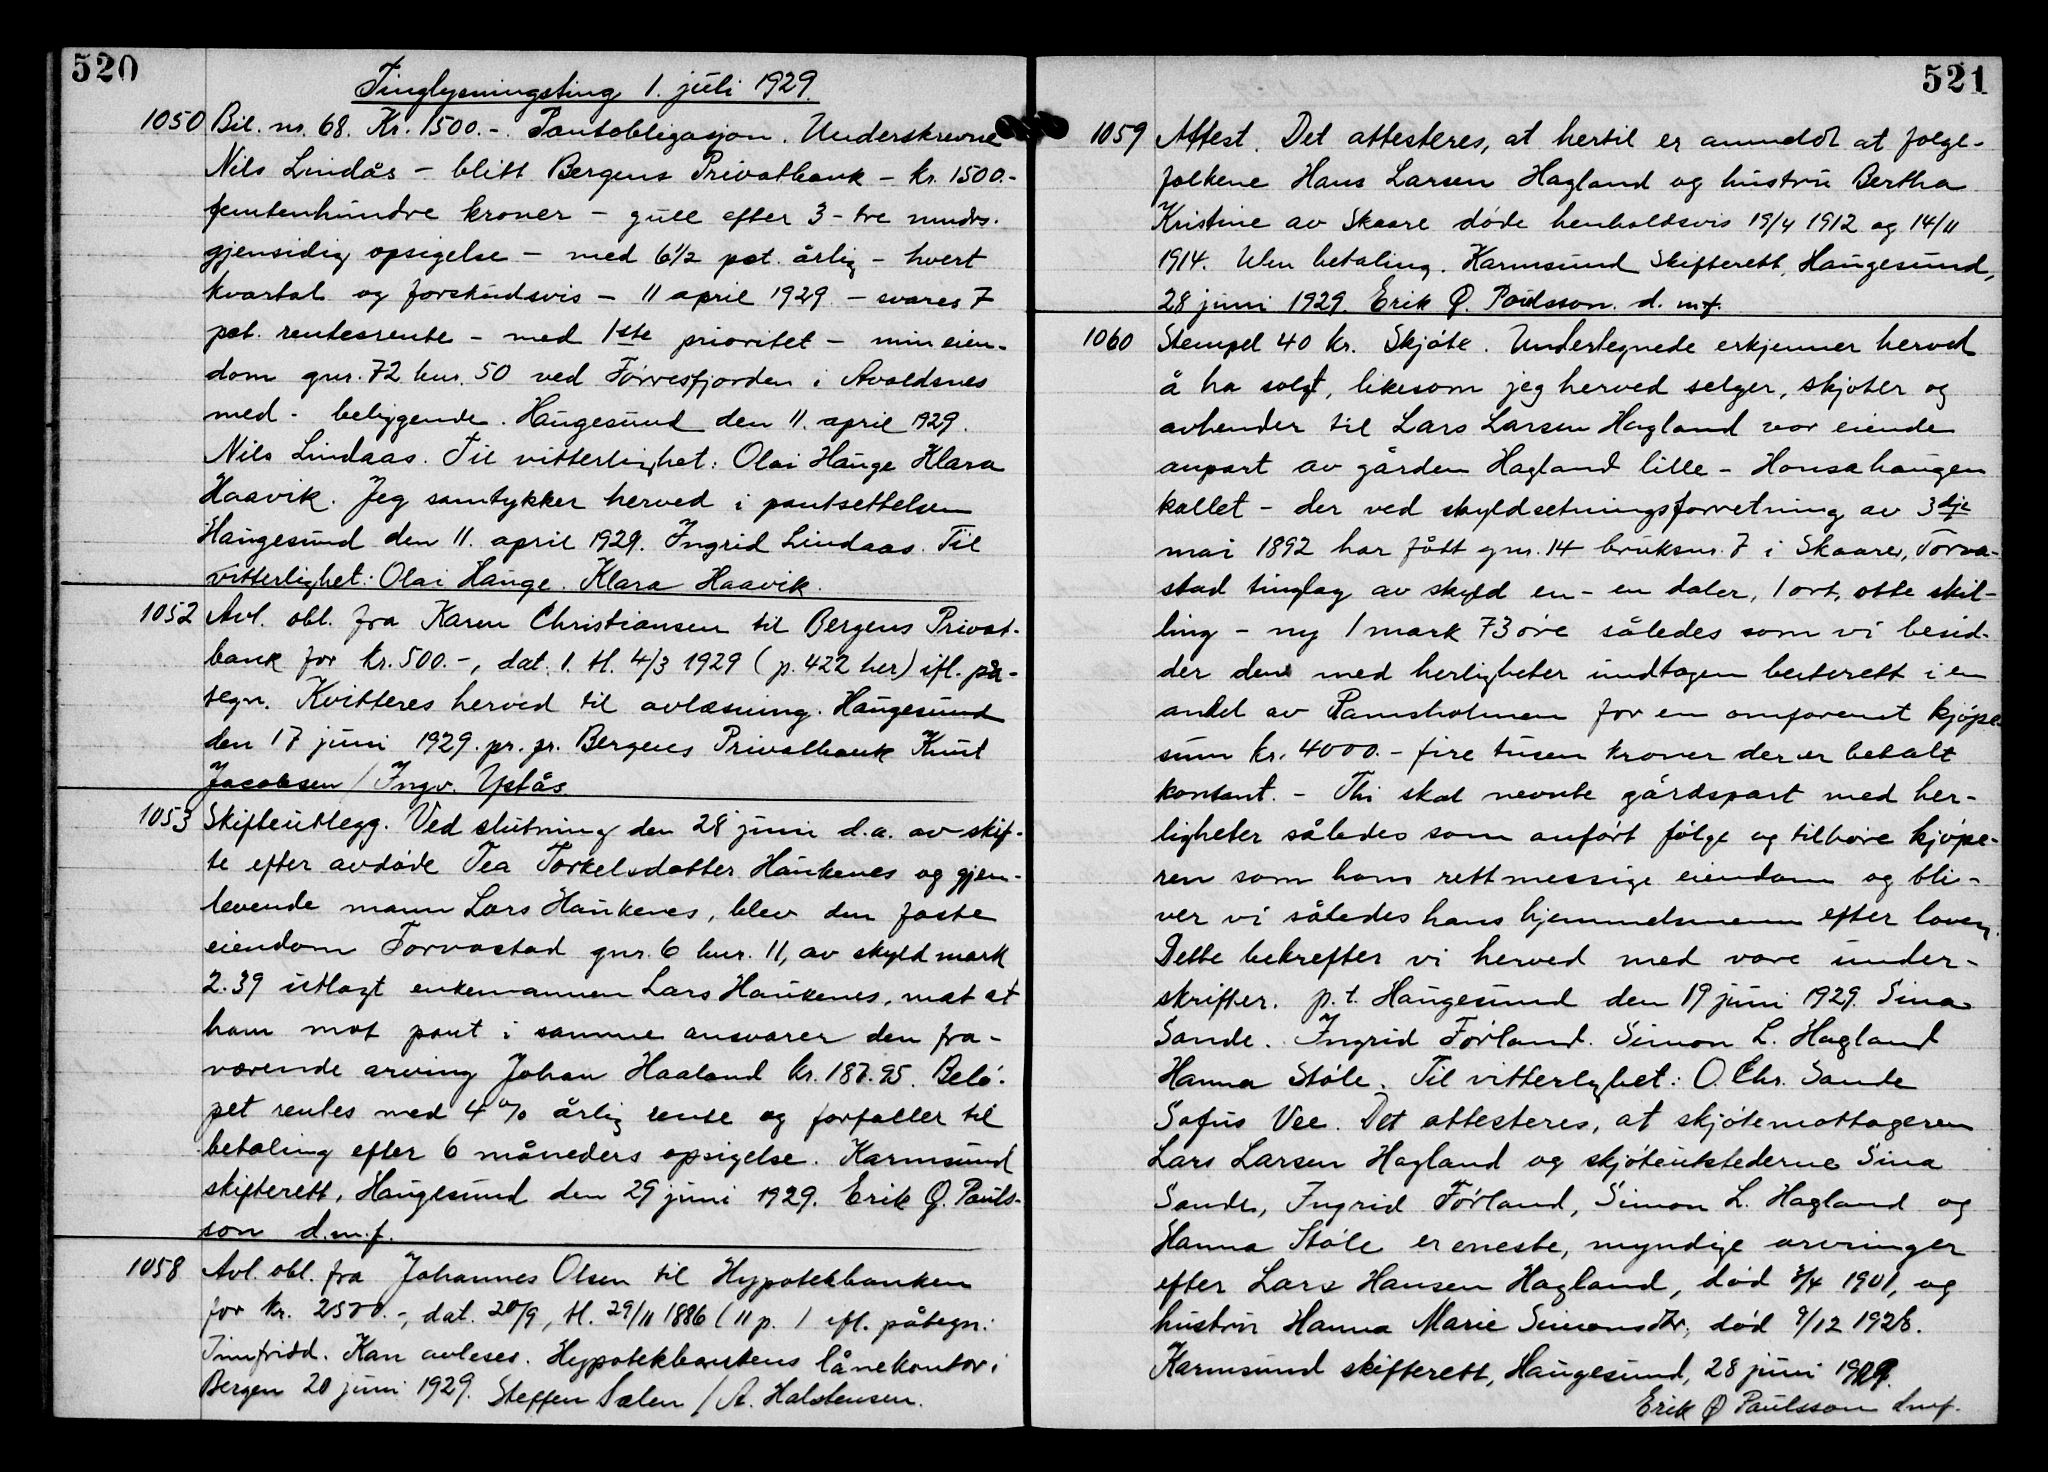 520
Tinglysningsting 1. juli 1929.
1050 Bil. nr. 68. Kr. 1500.-. Pantobligasjon. Underskrevne
Nils Lindås - blitt Bergens Privatbank - kr. 1500.-
femtenhundre kroner - gull efter 3 - tre mndrs.
gjensidig opsigelse - med 6½ pct. årlig - hvert
kvartal og forskudsvis - 11 april 1929 - svares 7
pct. rentesrente - med 1ste prioritet - min eien-
dom gnr. 72 bnr. 50 ved Førresfjorden i Avaldsnes
med - bebyggende. Haugesund den 11. april 1929.
Nils Lindaas. Til vitterlighet: Olai Hauge Klara
Haavik. Jeg samtykker herved i pantsettelsen
Haugesund den 11. april 1929. Ingrid Lindaas. Til
vitterlighet: Olai Hauge. Klara Haavik.
1052 Avl. obl. fra Karen Christiansen til Bergens Privat-
bank for kr. 500.-, dat. 1. tl. 4/3 1929 (p. 422 her) ifl. på-
tegn. Kvitteres herved til avlæsning. Haugesund
den 17 juni 1929. pr. pr. Bergens Privatbank Knut
Jacobsen / Ingv. Ystås.
1053 Skifteutlegg. Ved slutning den 28 juni d.a. av skif-
te efter avdøde Tea Torkelsdatter Haukenes og gjen-
levende mann Lars Haukenes, blev den faste
eiendom Torvastad gnr. 6 bnr. 11, av skyld mark
2.39 utlagt enkemannen Lars Haukenes, mot at
ham mot pant i samme ansvarer den fra-
værende arving Johan Haaland kr. 187.95. Belø-
pet rentes med 4% årlig rente og forfaller til
betaling efter 6 måneders opsigelse. Karmsund
skifterett, Haugesund den 29 juni 1929. Erik Q. Pauls-
son d.m.f.
1058 Avl. obl. fra Johannes Olsen til Hypotekbanken
for kr. 2500.-, dat. 20/9, tl. 29/11 1886 (11 p. ) ifl. påtegn:
Innfridd. Kan avleses. Hypotekbankens lånekontor i
Bergen 20 juni 1929. Steffen Sælen / A. Halstensen.
521
1059 Attest. Det attesteres, at hertil er anmeldt at folge-
folkene Hans Larsen Hagland og hustru Bertha
Kristine av Skaare døde henholdsvis 19/4 1912 og 14/11
1914. Uten betaling. Karmsund Skifterett, Haugesund,
28 juni 1929. Erik Q. Paulsson. d. m.f.
1060 Stempel 40 kr. Skjøte. Undertegnede erkjenner herved
å ha solgt, likesom jeg herved selger, skjøter og
avhender til Lars Larsen Hagland vor eiende
anpart av gården Hagland lille - Honsahaugen
kallet - der ved skyldsetningsforretning av 3dje
mai 1892 har fått gnr. 14 bruksnr. 7 i Skaare, Torva-
stad tinglag av skyld en - en daler, 1 ort, otte skil-
ling - ny 1 mark 73 øre således som vi besid-
der den med herligheter undtagen beiterett i en
andel av Ramsholmen for en omforenet kjøpe-
sum kr. 4000.- fire tusen kroner der er betalt
kontant. - Thi skal nevnte gårdspart med her-
ligheter således som anført følge og tilhøre kjøpe-
ren som hans rettmessige eiendom og bli-
ver vi således hans hjemmelsmenn efter loven.
Dette bekrefter vi herved med vore under-
skrifter. p.t. Haugesund den 19 juni 1929. Sina
Sande. Ingrid Førland. Simon L. Hagland
Hanna Støle. Til vitterlighet: O. Chr. Sande
Sofus Vee. Det attesteres, at skjøtemottageren
Lars Larsen Hagland og skjøteutstederne Sina
Sande, Ingrid Førland, Simon L. Hagland og
Hanna Støle er eneste, myndige arvinger
efter Lars Hansen Hagland, død 3/4 1901, og
hustru Hanna Marie Simonsdtr, død 9/12 1928.
Karmsund skifterett, Haugesund, 28 juni 1929.
Erik Q Paulsson dmf.